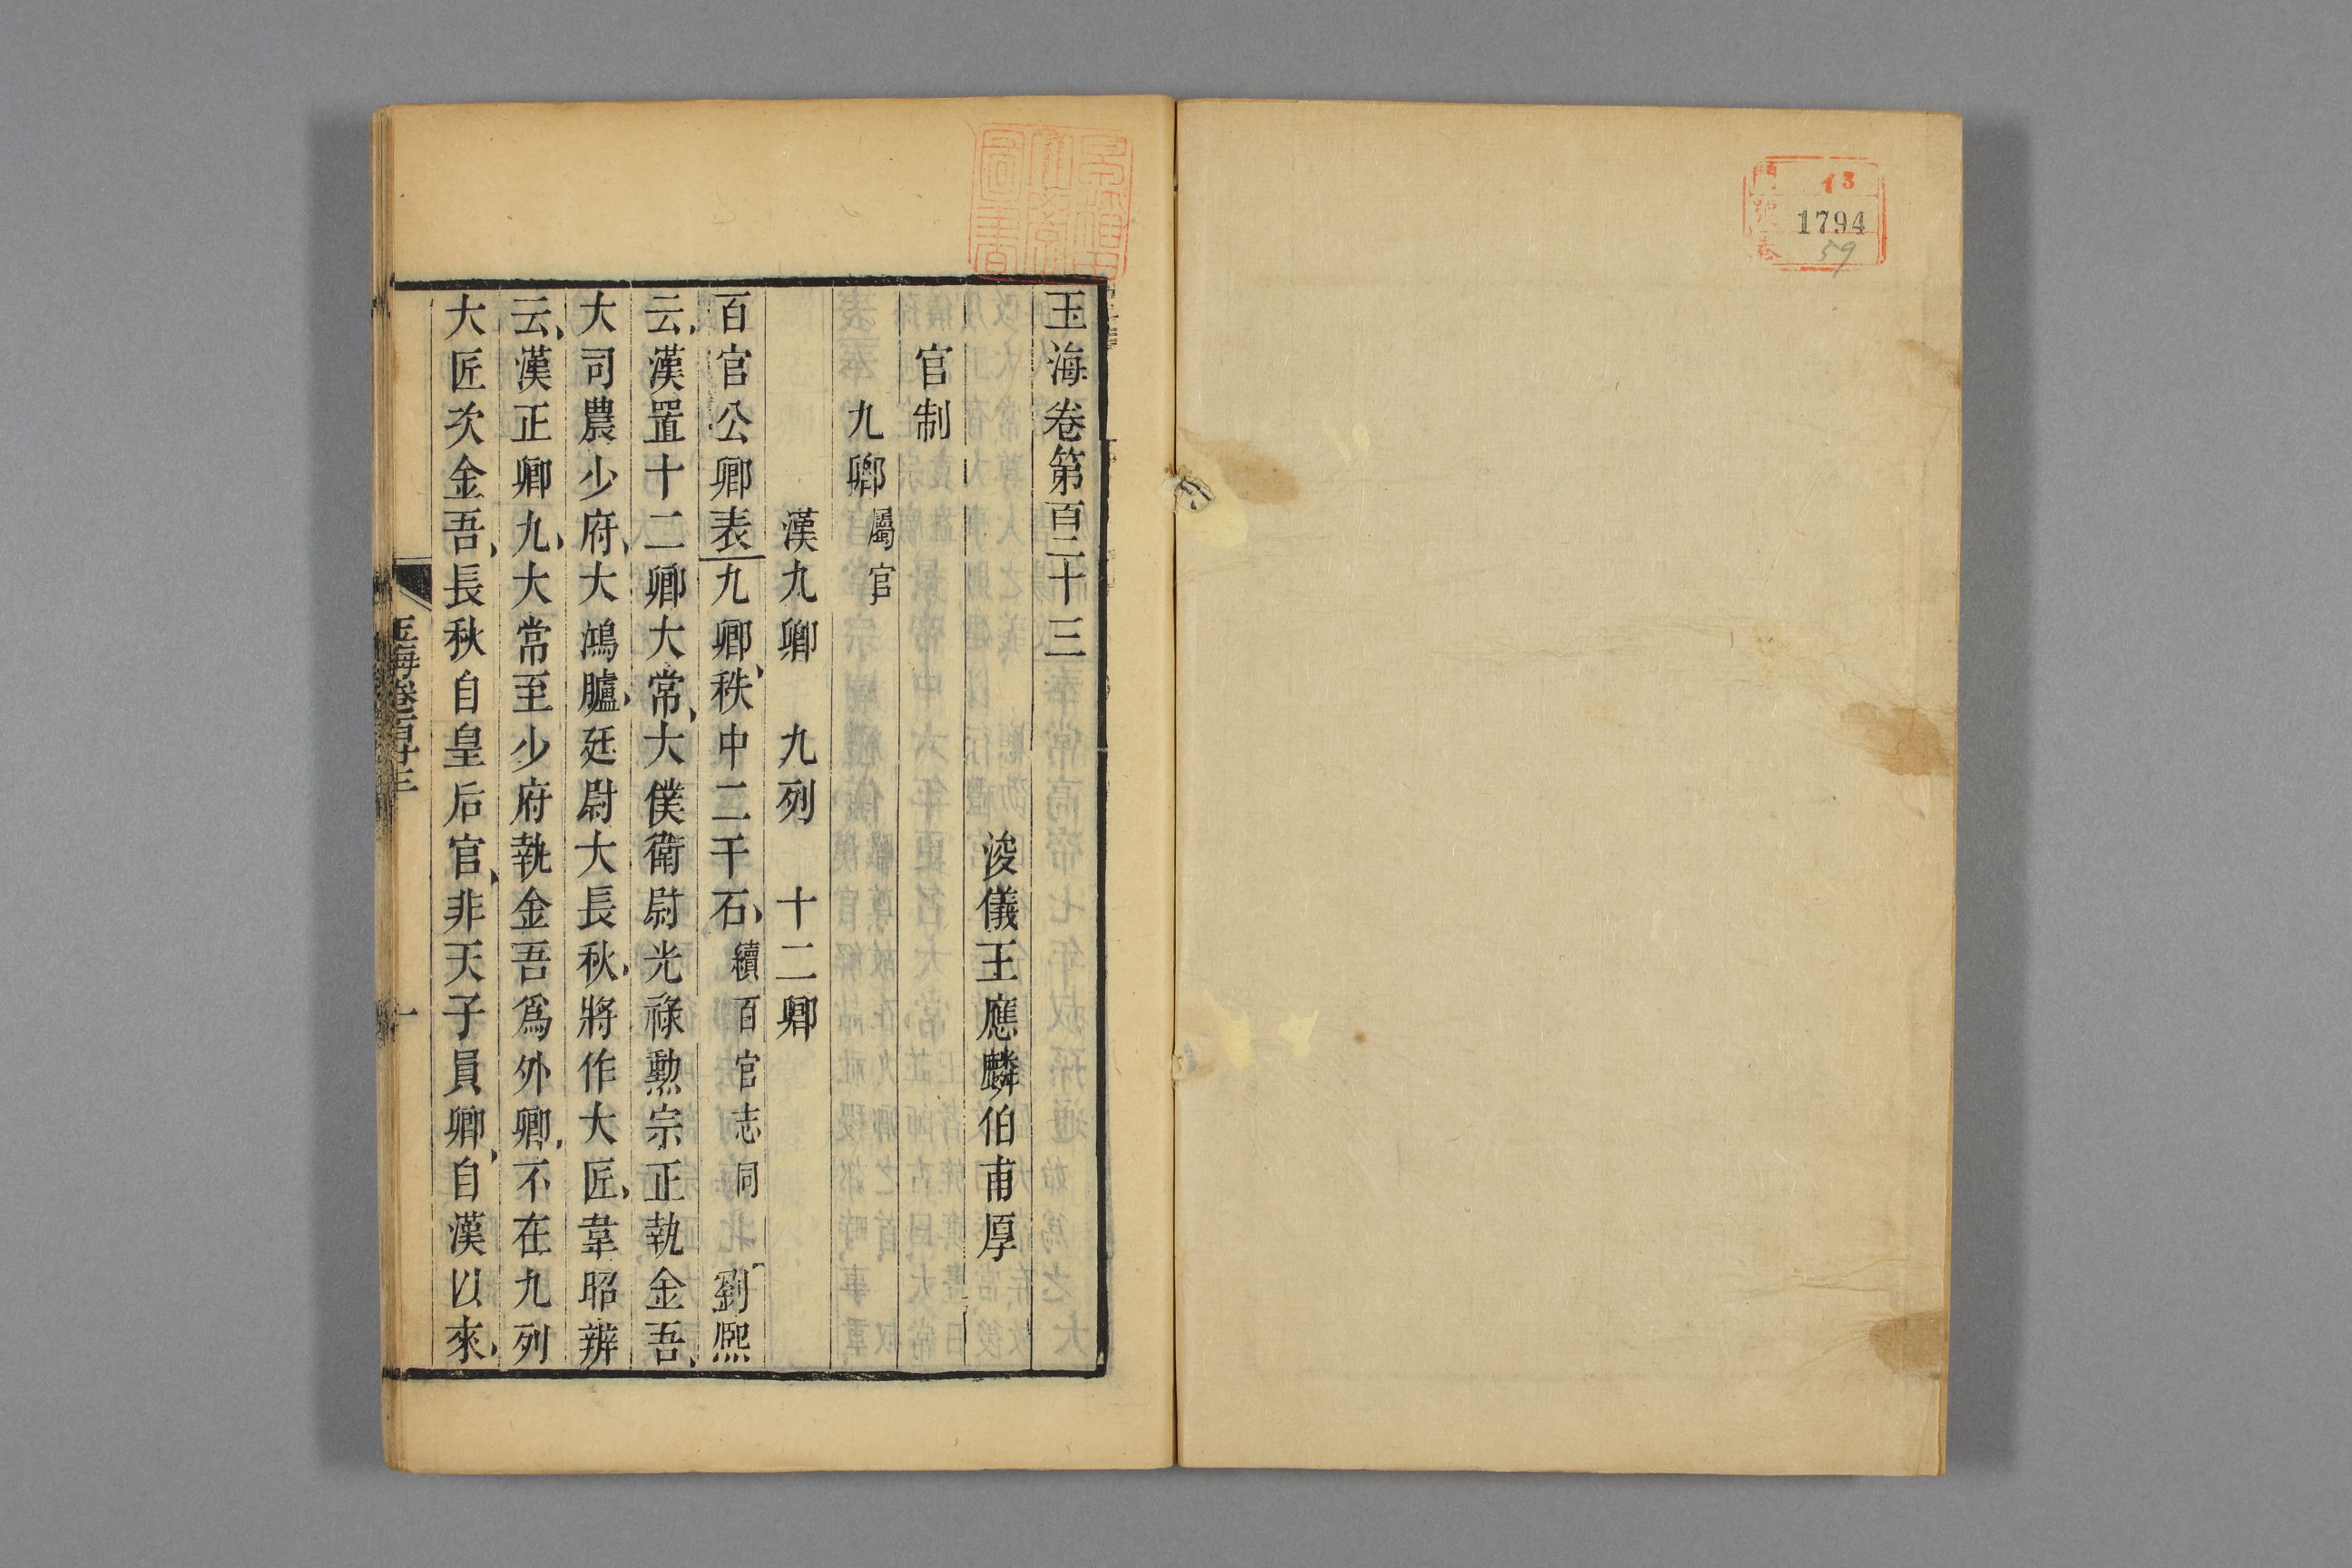 門 13
號 1794
卷 59
玉海卷第百二十三
浚儀王應麟伯甫厚
官制
九卿屬官
漢九卿 九列 十二卿
百官公卿表九卿秩中二千石續百官志同 劉熙
云漢置十二卿大常大僕衛尉光祿勲宗正執金吾
大司農少府大鴻臚廷尉大長秋將作大匠韋昭辨
云漢正卿九大常至少府執金吾爲外卿不在九列
大匠次金吾長秋自皇后官非天子員卿自漢以來
玉海卷百廿三
一